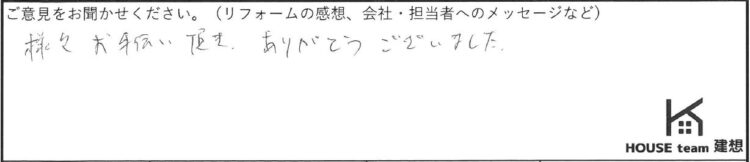 ご意見をお聞かせください。（リフォームの感想、会社・担当者へのメッセージなど）
様々お手伝い頂き、ありがとうございました。
HOUSE team 建想